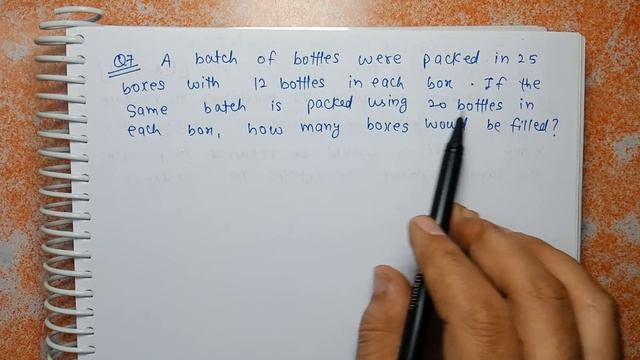 Q7 A batch of bottles were packed in 25
boxes with 12 bottles in each box . If the
same batch is packed using 20 bottles in
each box, how many boxes would be filled?